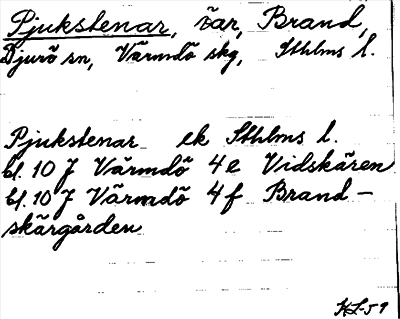 Pjukstenar, öar, Brand,
Djurö sn, Värmdö skg, Sthlms l.
Pjukstenar ek Sthlms l.
bl. 10 J Värmdö 4e Vidskären
bl. 10 J Värmdö 4f Brand-
skärgården
HL-59